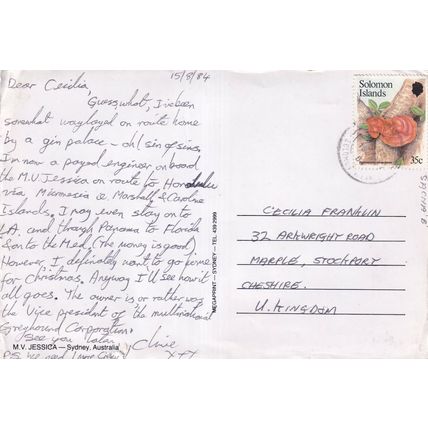 15/8/84
Dear Cecilia,
Guess what, I've been
somewhat waylayed on route home
by a gin palace - oh! sin of sins.
I'm now a payed engineer on board
the M.V. Jessica on route to Honolulu
via Micronesia ie Marshall & Caroline
Islands. I may even stay on to
L.A. and through Panama to Florida
& onto the Med. (The money is good)
However I definately want to go home
for Christmas. Anyway I'll see how it
all goes. The owner is or rather was
the Vice president of the multinational
Greyhound Corporation.
See you later
Clive
xxx
M.V. JESSICA — Sydney, Australia
P.S. We need 1 more Crew
MEGAPRINT — SYDNEY — TEL 439 2999
Solomon
Islands
35c
CECILIA FRANKLIN
32 ARKWRIGHT ROAD
MARPLE, STOCKPORT
CHESHIRE.
U. KINGDOM